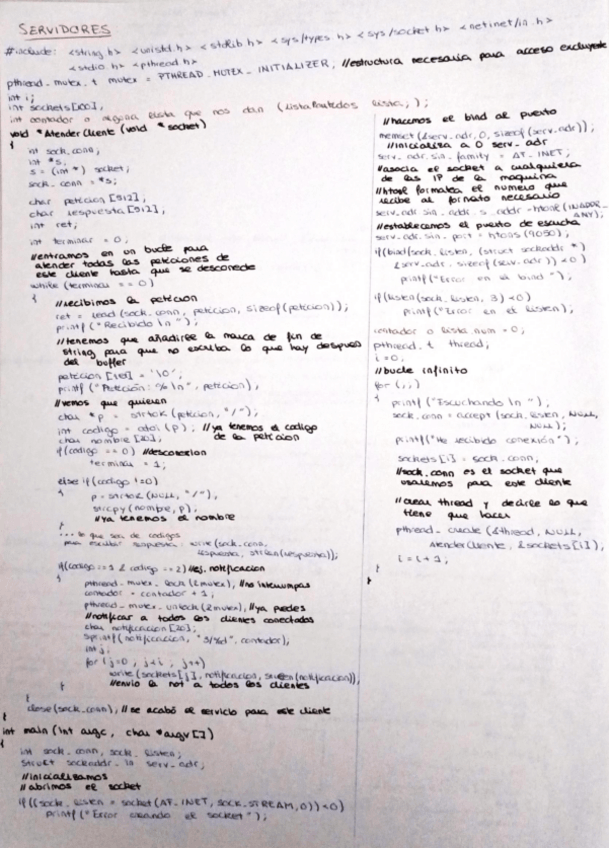 SERVIDORES
#include: <string.h> <unistd.h> <stdlib.h> <sys/types.h> <sys/socket.h> <netinet/in.h>
<stdio.h> <pthread.h>
pthread_mutex_t mutex = PTHREAD_MUTEX_INITIALIZER; //estructura necesaria para acceso excluyente
int i;
int sockets[100];
int contador o alguna lista que nos dan (ListaConectados lista;);
void *AtenderCliente (void *socket)
{
int sock_conn;
int *s;
s = (int *) socket;
sock_conn = *s;
char peticion [512];
char respuesta [512];
int ret;
int terminar = 0;
//entramos en un bucle para
atender todas las peticiones de
este cliente hasta que se desconecte
while (terminar == 0)
{
//recibimos la peticion
ret = read (sock_conn, peticion, sizeof(peticion));
printf ("Recibido \n");
//tenemos que añadirle la marca de fin de
string para que no escriba lo que hay despues
del buffer
peticion [ret] = '\0';
printf ("Petición: % \n", peticion);
//vemos que quieren
char *p = strtok (peticion, "/");
int codigo = atoi (p); //ya tenemos el codigo
de la peticion
char nombre [20];
if (codigo == 0) //desconexion
terminar = 1;
else if (codigo !=0)
{
p = strtok (NULL, "/");
strcpy (nombre, p);
//ya tenemos el nombre
}
... lo que sea de codigos
para escribir respuesta: write (sock_conn,
respuesta, strlen(respuesta));
if (codigo == 1 & codigo == 2) //ej. notificacion
{
pthread_mutex_lock (&mutex); //no interrumpas
contador = contador + 1;
pthread_mutex_unlock (&mutex); //ya puedes
//notificar a todos los clientes conectados
char notificacion [20];
sprintf (notificacion, "3/%d", contador);
int j;
for (j=0 ; j<i ; j++)
write (sockets[j], notificacion, strlen(notificacion));
//envio la not a todos los clientes
}
}
close (sock_conn); //se acabó el servicio para este cliente
}
int main (int argc, char *argv[])
{
int sock_conn, sock_listen;
struct sockaddr_in serv_adr;
//inicializamos
//abrimos el socket
if ((sock_listen = socket (AF_INET, SOCK_STREAM,0)) <0)
printf ("Error creando el socket");
//hacemos el bind al puerto
memset (&serv_adr, 0, sizeof (serv_adr));
//inicializa a 0 serv_adr
serv_adr.sin_family = AF_INET;
//asocia el socket a cualquiera
de las IP de la maquina
//htonl formatea el numero que
recibe al formato necesario
serv_adr.sin_addr.s_addr = htonl (INADDR_
ANY);
//establecemos el puerto de escucha
serv_adr.sin_port = htons (9050);
if (bind (sock_listen, (struct sockaddr *)
&serv_adr, sizeof (serv_adr)) <0)
printf ("Error en el bind");
if (listen (sock_listen, 3) <0)
printf ("Error en el listen);
contador o lista num = 0;
pthread_t thread;
i=0;
//bucle infinito
for (;;)
{
printf ("Escuchando \n");
sock_conn = accept (sock_listen, NULL,
NULL);
printf ("He recibido conexión");
sockets[i] = sock_conn;
//sock_conn es el socket que
usaremos para este cliente
//crear thread y decirle lo que
tiene que hacer
pthread_create (&thread, NULL,
AtenderCliente, &sockets[i]);
i = i + 1;
}
}